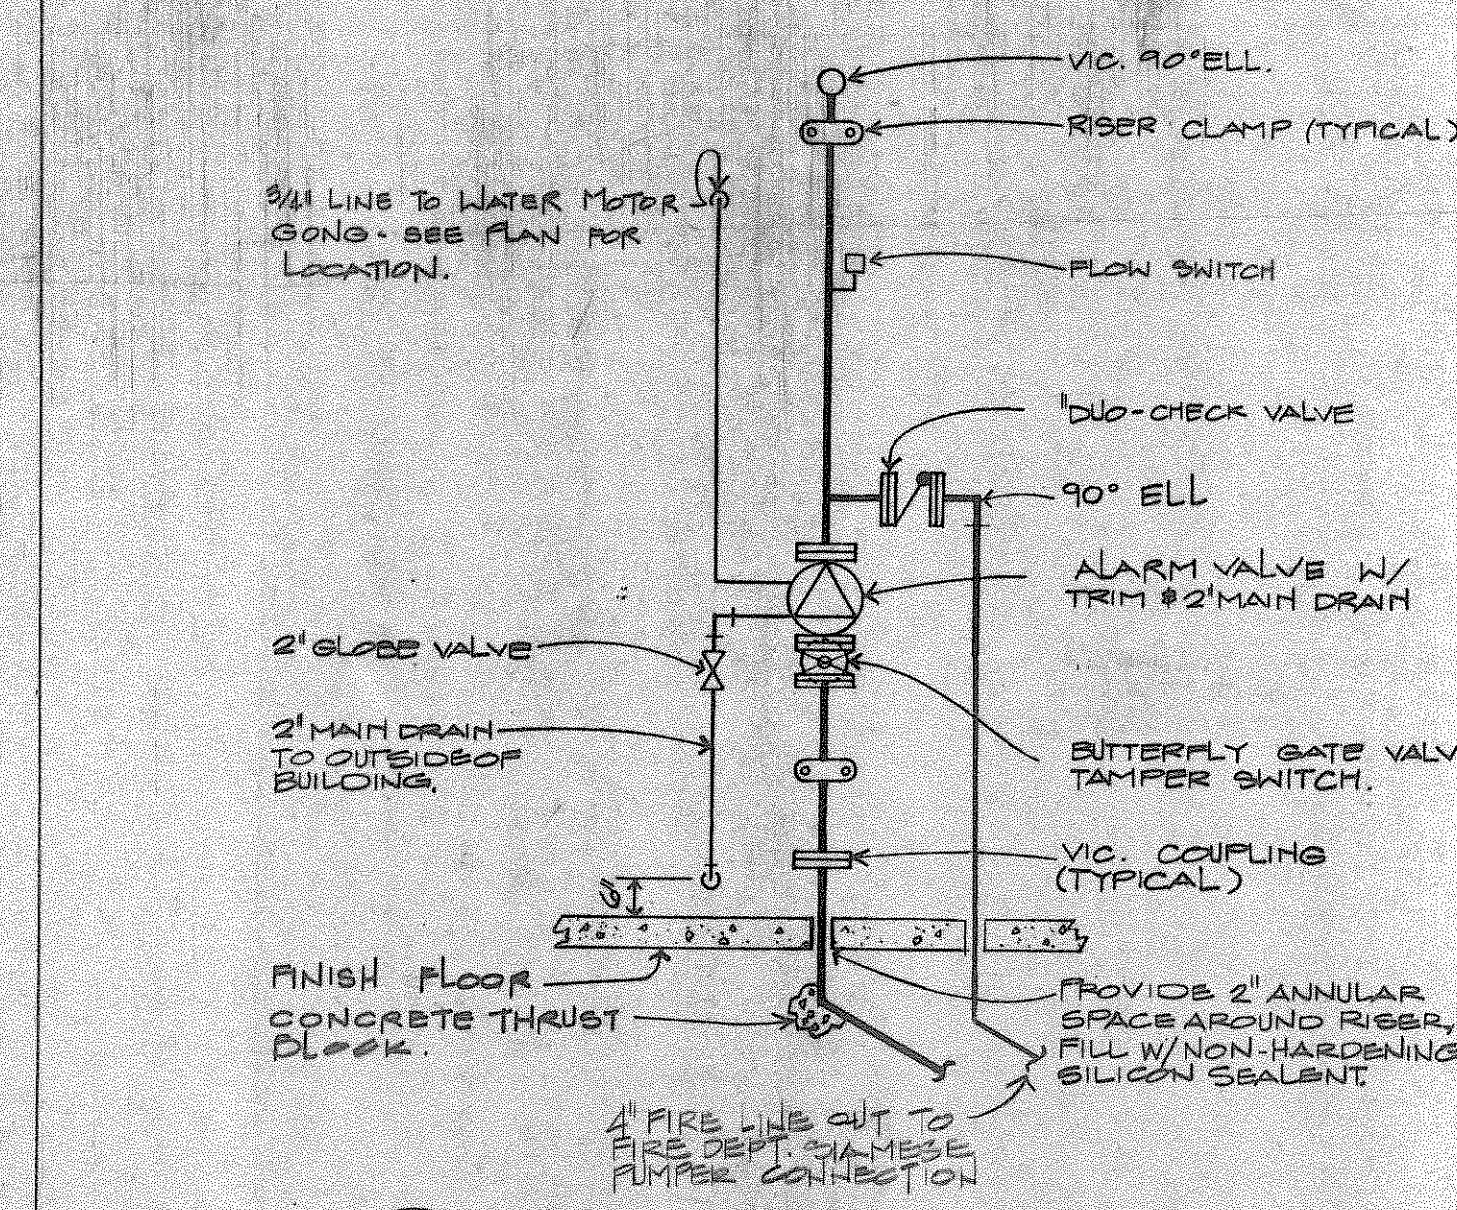 VIC. 90° ELL.
RISER CLAMP (TYPICAL)
3/4" LINE TO WATER MOTOR
GONG - SEE PLAN FOR
LOCATION.
FLOW SWITCH
"DUO-CHECK VALVE
90° ELL
ALARM VALVE W/
TRIM & 2" MAIN DRAIN
2" GLOBE VALVE
2" MAIN DRAIN
TO OUTSIDE OF
BUILDING.
BUTTERFLY GATE VALV
TAMPER SWITCH.
VIC. COUPLING
(TYPICAL)
FINISH FLOOR
CONCRETE THRUST
BLOCK.
PROVIDE 2" ANNULAR
SPACE AROUND RISER,
FILL W/ NON-HARDENING
SILICON SEALENT.
4" FIRE LINE OUT TO
FIRE DEPT. SIAMESE
PUMPER CONNECTION